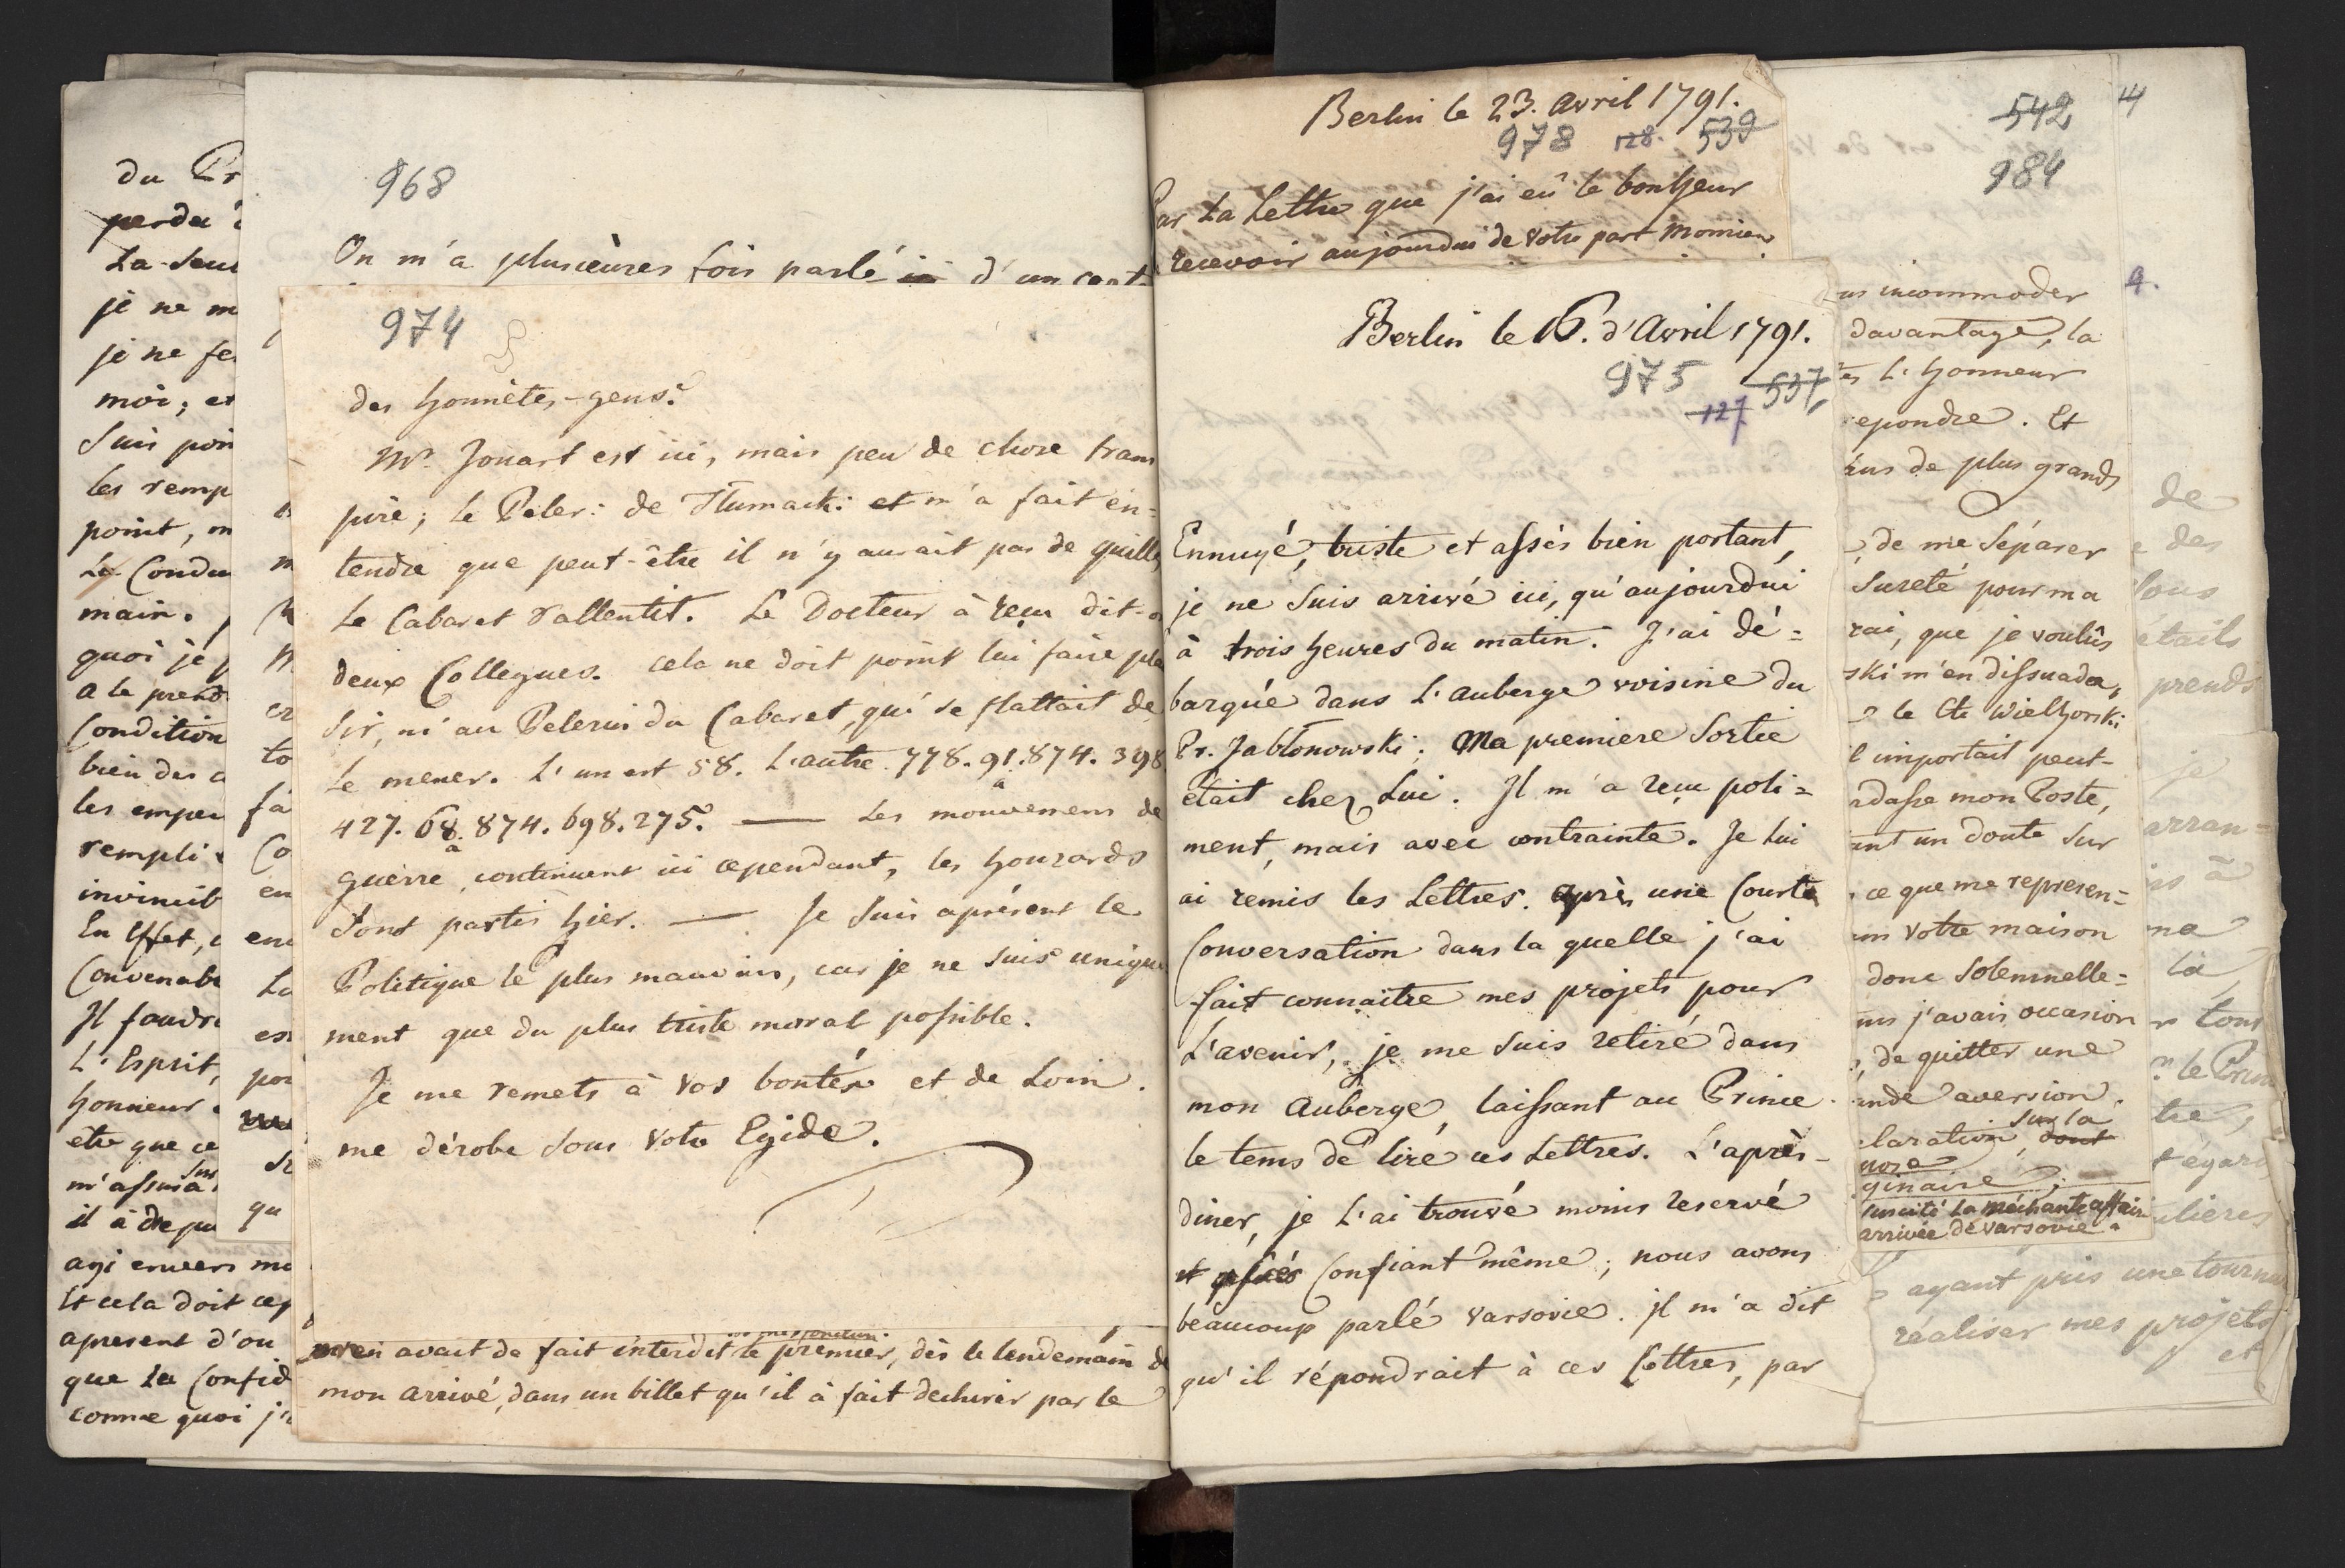 du Pr
perdu
La Seu
je ne m
je ne fe
moi; et
Suis poin
les remp
point, m
Le Condu
main.
quoi je
a le prend
Condition
bien des a
les empe
rempli
invincib
En Effet,
Convenab
Il faudr
L'Esprit,
honneur
être que ce
Sur
m'assura
il à depu
agi envers mo
Et cela doit cep
apresent d'ou
que La Confid
comme quoi j'
to
fa
Co
en
enc
La
es
pou
qu
968
On m'a plusieures fois parlé d'un cert
974
des honnêtes-gens.
Mr. Jouart est ici, mais peu de chose trans
pire; le Peler: de Tlumacki et m'a fait en=
tendre que peut-être il n'y aurait pas de quille,
Le Cabaret rallentit. Le Docteur à reçu dit-o
deux Collegues. Cela ne doit point lui faire pla
sir, ni au Pelerin du Cabaret, qui se flattait de
le mener. L'un est 58. L'autre 778. 91. 874. 398
427. 68. 874. 698. 275. — Les mouvemens de
guerre, continuent ici cependant, les houzards
sont partis hier. — Je suis apresent le
Politique le plus mauvais, car je ne suis unique
ment que du plus triste moral possible.
Je me remets à vos bontés et de Loin
me dérobe sous votre Egide.
avait de fait interdit le premier, dès le lendemain d
mon arrivé, dans un billet qu'il à fait dechirer par le
Berlin le 23. Avril 1791.
978 128. 539
Par La Lettre que j'ai eû le bonheur
recevoir aujourdui de votre part
Berlin le 16. d'Avril 1791.
975 537
127
Ennuyé, triste et assés bien portant,
je ne suis arrivé ici, qu'aujourdui
à trois heures du matin. J'ai dé=
barqué dans L'auberge voisine du
Pr. Jabłonowski; Ma premiere Sortie
était chez Lui. Il m'a reçu poli=
ment, mais avec contrainte. Je Lui
ai remis les Lettres. après une Courte
Conversation dans la quelle j'ai
fait connaitre mes projets pour
L'avenir, je me suis retiré dans
mon Auberge, laissant au Prince
le tems de lire ces Lettres. L'après-
diner, je L'ai trouvé moins reservé
et assés Confiant même; nous avons
beaucoup parlé Varsovie. il m'a dit
qu'il répondrait à ces Lettres, par
542 4
984
us incommoder 4.
davantage, la
L'honneur
repondre. Et
plus de plus grands
de me séparer
Sureté pour ma
rai, que je voulûs
ski m'en dissuada,
le Cte Wielhorski
l importait peut-
rdasse mon Poste,
ant un doute sur
ce que me represen=
votre maison
donc Solemnelle=
j'avais occasion
, de quitter une
ande aversion
sur la
claration, dont
ginaire;
suscité La méchante affair
arrivée de Varsovie.
de
des
étails
prends
je
arran=
na
la
r tous
le Prin
tre,
t égard
ulieres
ayant pris une tournu
réaliser mes projets
et